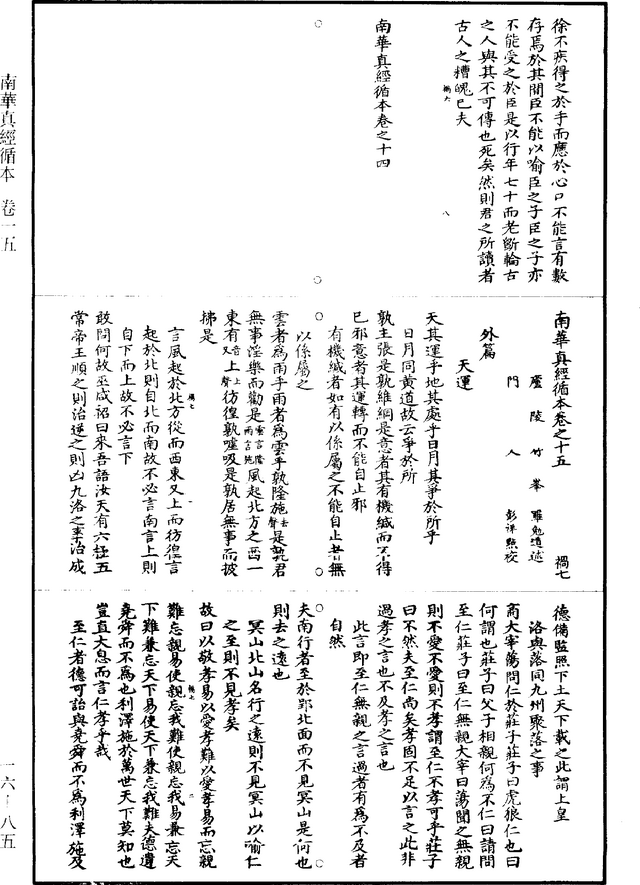 南華真經循本　卷一五
一六－八五
徐不疾得之於手而應於心口不能言有數
存焉於其間臣不能以喻臣之子臣之子亦
不能受之於臣是以行年七十而老斲輪古
之人與其不可傳也死矣然則君之所讀者
古人之糟魄已夫
禍六
八
南華真經循本卷之十四
南華真經循本卷之十五
禍七
廬陵竹峯羅勉道述
門人彭祥點校
外篇
天運
天其運乎地其處乎日月其爭於所乎
日月同黃道故云爭於所
孰主張是孰維綱是意者其有機緘而不得
已邪意者其運轉而不能自止邪
有機緘者如有以係屬之不能自止者無
以係屬之
雲者爲雨乎雨者爲雲乎孰隆施去聲是孰居
無事淫樂而勸是雲言隆雨言施風起北方之西一
東有又音上上聲彷徨孰噓吸是孰居無事而披
拂是
禍七
言風起於北方從而西東又上而彷徨言
起於北則自北而南故不必言南言上則
自下而上故不必言下
敢問何故巫咸祒曰來吾語汝天有六極五
常帝王順之則治逆之則凶九洛之事治成
德備監照下土天下載之此謂上皇
洛與落同九州聚落之事
商大宰蕩問仁於莊子莊子曰虎狼仁也曰
何謂也莊子曰父子相親何爲不仁曰請問
至仁莊子曰至仁無親大宰曰蕩聞之無親
則不愛不愛則不孝謂至仁不孝可乎莊子
曰不然夫至仁尚矣孝固不足以言之此非
過孝之言也不及孝之言也
此言即至仁無親之言過者有爲不及者
自然
夫南行者至於郢北面而不見冥山是何也
則去之遠也
冥山北山名行之遠則不見冥山以喻仁
之至則不見孝矣
故曰以敬孝易以愛孝難以愛孝易而忘親
難忘親易使親忘我難使親忘我易兼忘天
下難兼忘天下易使天下兼忘我難夫德遺
堯舜而不爲也利澤施於萬世天下莫知也
豈直大息而言仁孝乎哉
至仁者德可詒與堯舜而不爲利澤施及